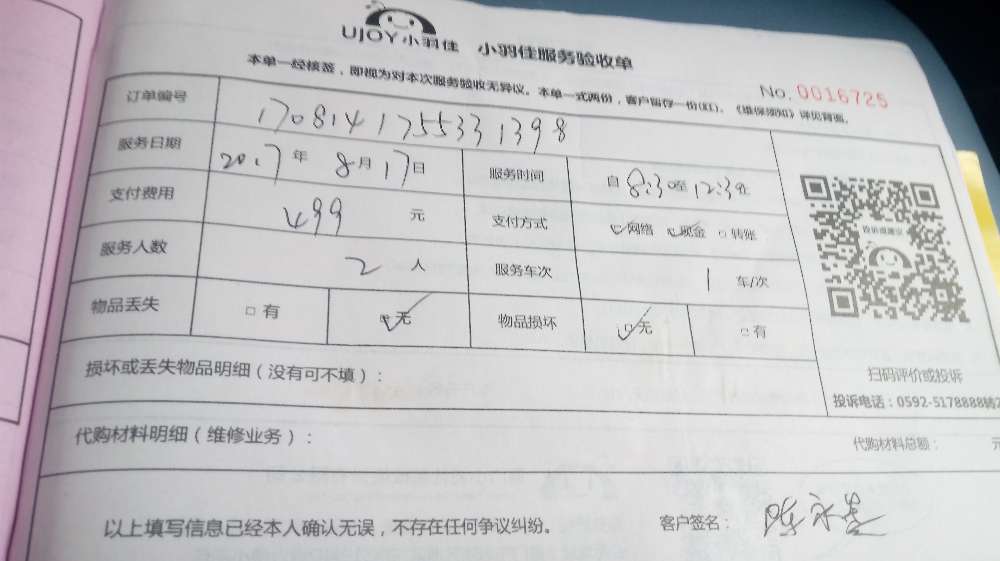 UJOY小羽佳 小羽佳服务验收单
本单一经核签，即视为对本次服务验收无异议。本单一式两份，客户留存一份(红)。《维保须知》详见背面。
No. 0016725
订单编号 170814175533 1398
服务日期 2017年 8月17日 服务时间 自 8:30至 12:30止
支付费用 499 元 支付方式 网络 现金 转账
服务人数 2 人 服务车次 1 车/次
物品丢失 有 无 物品损坏 无 有
投诉或建议
扫码评价或投诉
投诉电话：0592-5178888转2
损坏或丢失物品明细（没有可不填）：
代购材料明细（维修业务）： 代购材料总额： 元
以上填写信息已经本人确认无误，不存在任何争议纠纷。 客户签名：